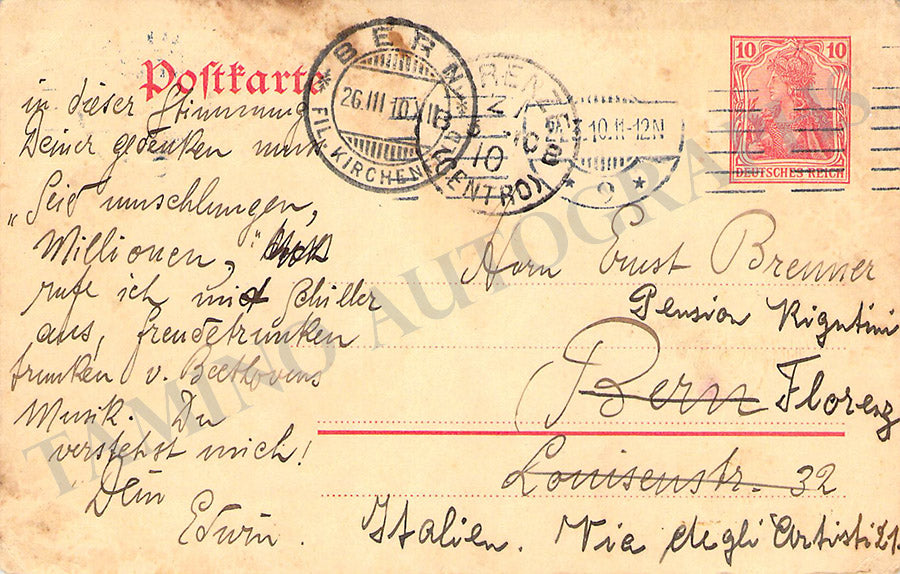 Postkarte
in dieser Stimmung
Deiner gedenken muß
"Seid umschlungen,
Millionen,"
rufe ich mit Schiller
aus, freudetrunken
trunken v. Beethovens
Musik. Du
verstehst mich!
Dein
Edwin.
BERN
26.III 10.
FIL. KIRCHENFELD
RENZ
10
(CENTRO)
10.11-12N
10 10
DEUTSCHES REICH
Herrn Ernst Brenner
Pension Rigutini
Bern Florenz
Louisenstr. 32
Italien. Via degli Artisti 21.
TAMINO AUTOGRAPHS